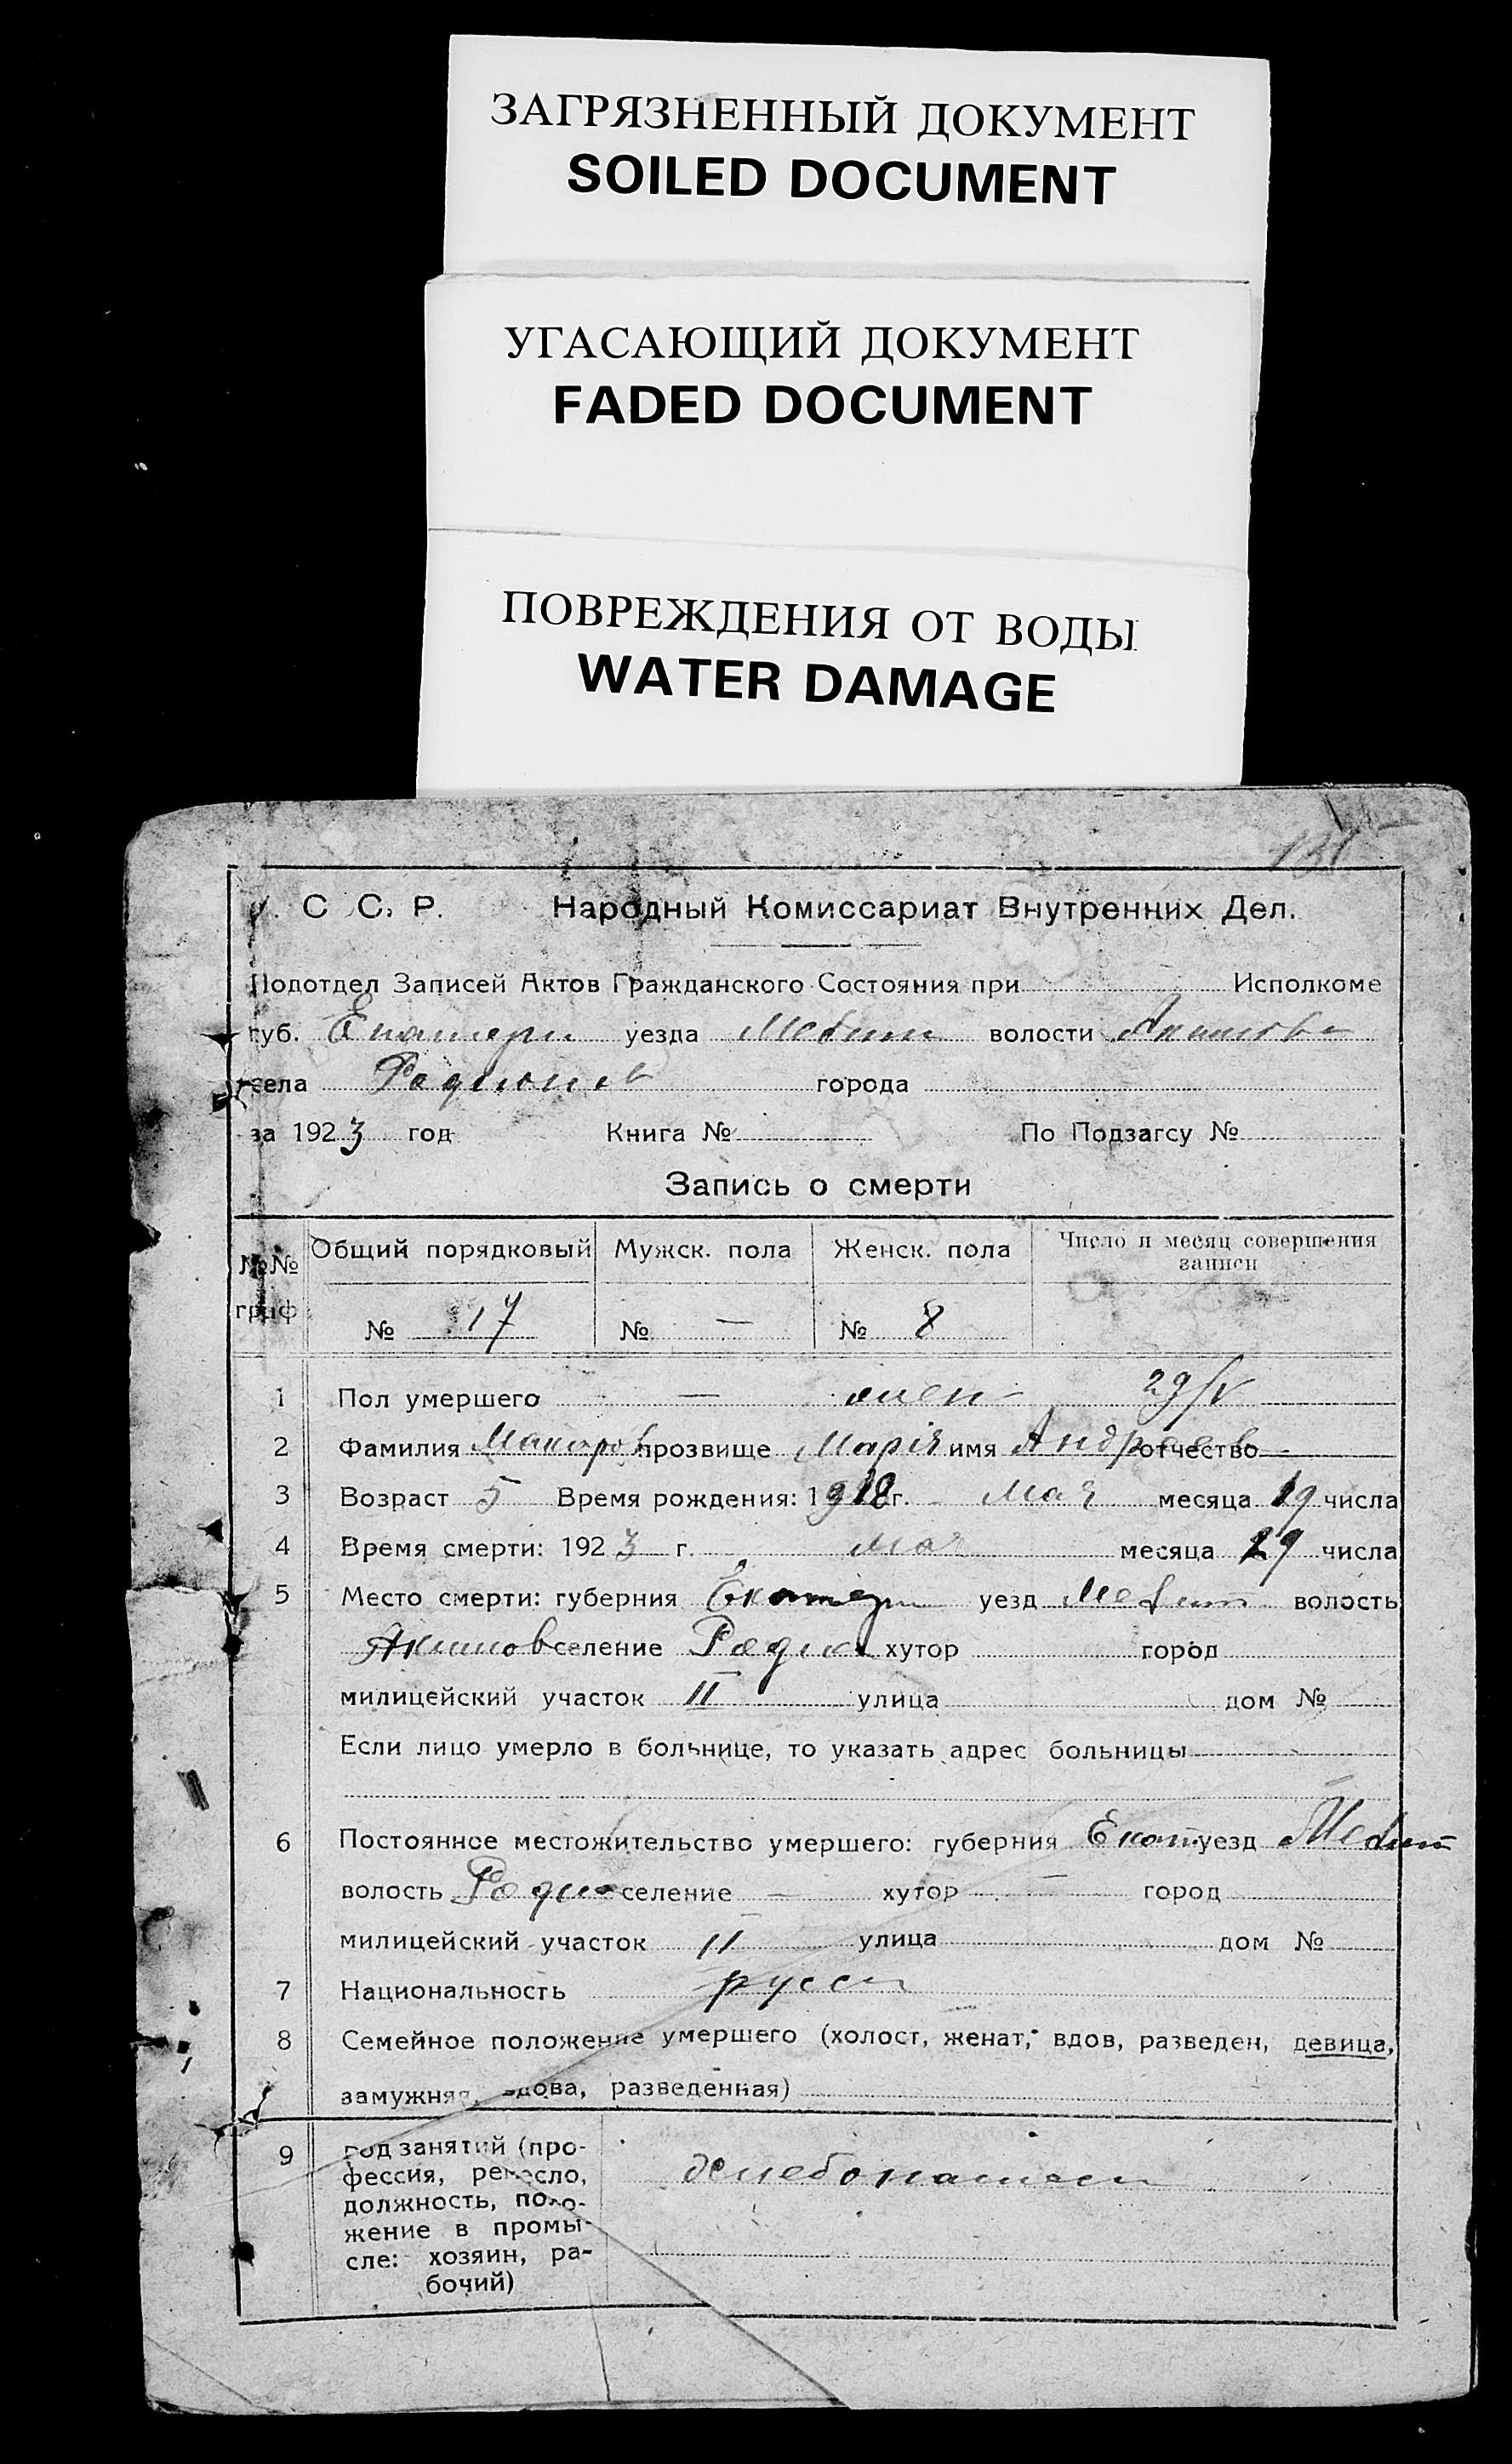 ЗАГРЯЗНЕННЫЙ ДОКУМЕНТ
SOILED DOCUMENT
УГАСАЮЩИЙ ДОКУМЕНТ
FADED DOCUMENT
ПОВРЕЖДЕНИЯ ОТ ВОДЫ
WATER DAMAGE
У. С. С. Р. Народный Комиссариат Внутренних Дел.
Подотдел Записей Актов Гражданского Состояния при Исполкоме
губ. Екатери уезда Мелит волости Акимов
села Родионов города
за 1923 год Книга № По Подзагсу №
Запись о смерти
№№ граф Общий порядковый Мужск. пола Женск. пола Число и месяц совершения записи
№ 17 № — № 8
1 Пол умершего — жен 29/V
2 Фамилия прозвище Марія имя Андреев отчество
3 Возраст 5 Время рождения: 1918 г. Мая месяца 19 числа
4 Время смерти: 1923 г. Мая месяца 29 числа
5 Место смерти: губерния Екатери уезд Мелит волость
Акимов селение Родио хутор город
милицейский участок II улица дом №
Если лицо умерло в больнице, то указать адрес больницы
6 Постоянное местожительство умершего: губерния Екат уезд Мелит
волость Родио селение — хутор — город
милицейский участок II улица дом №
7 Национальность русск
8 Семейное положение умершего (холост, женат, вдов, разведен, девица,
замужняя, вдова, разведенная)
9 Род занятий (про-
фессия, ремесло,
должность, поло-
жение в промы-
сле: хозяин, ра-
бочий)
хлебопашест